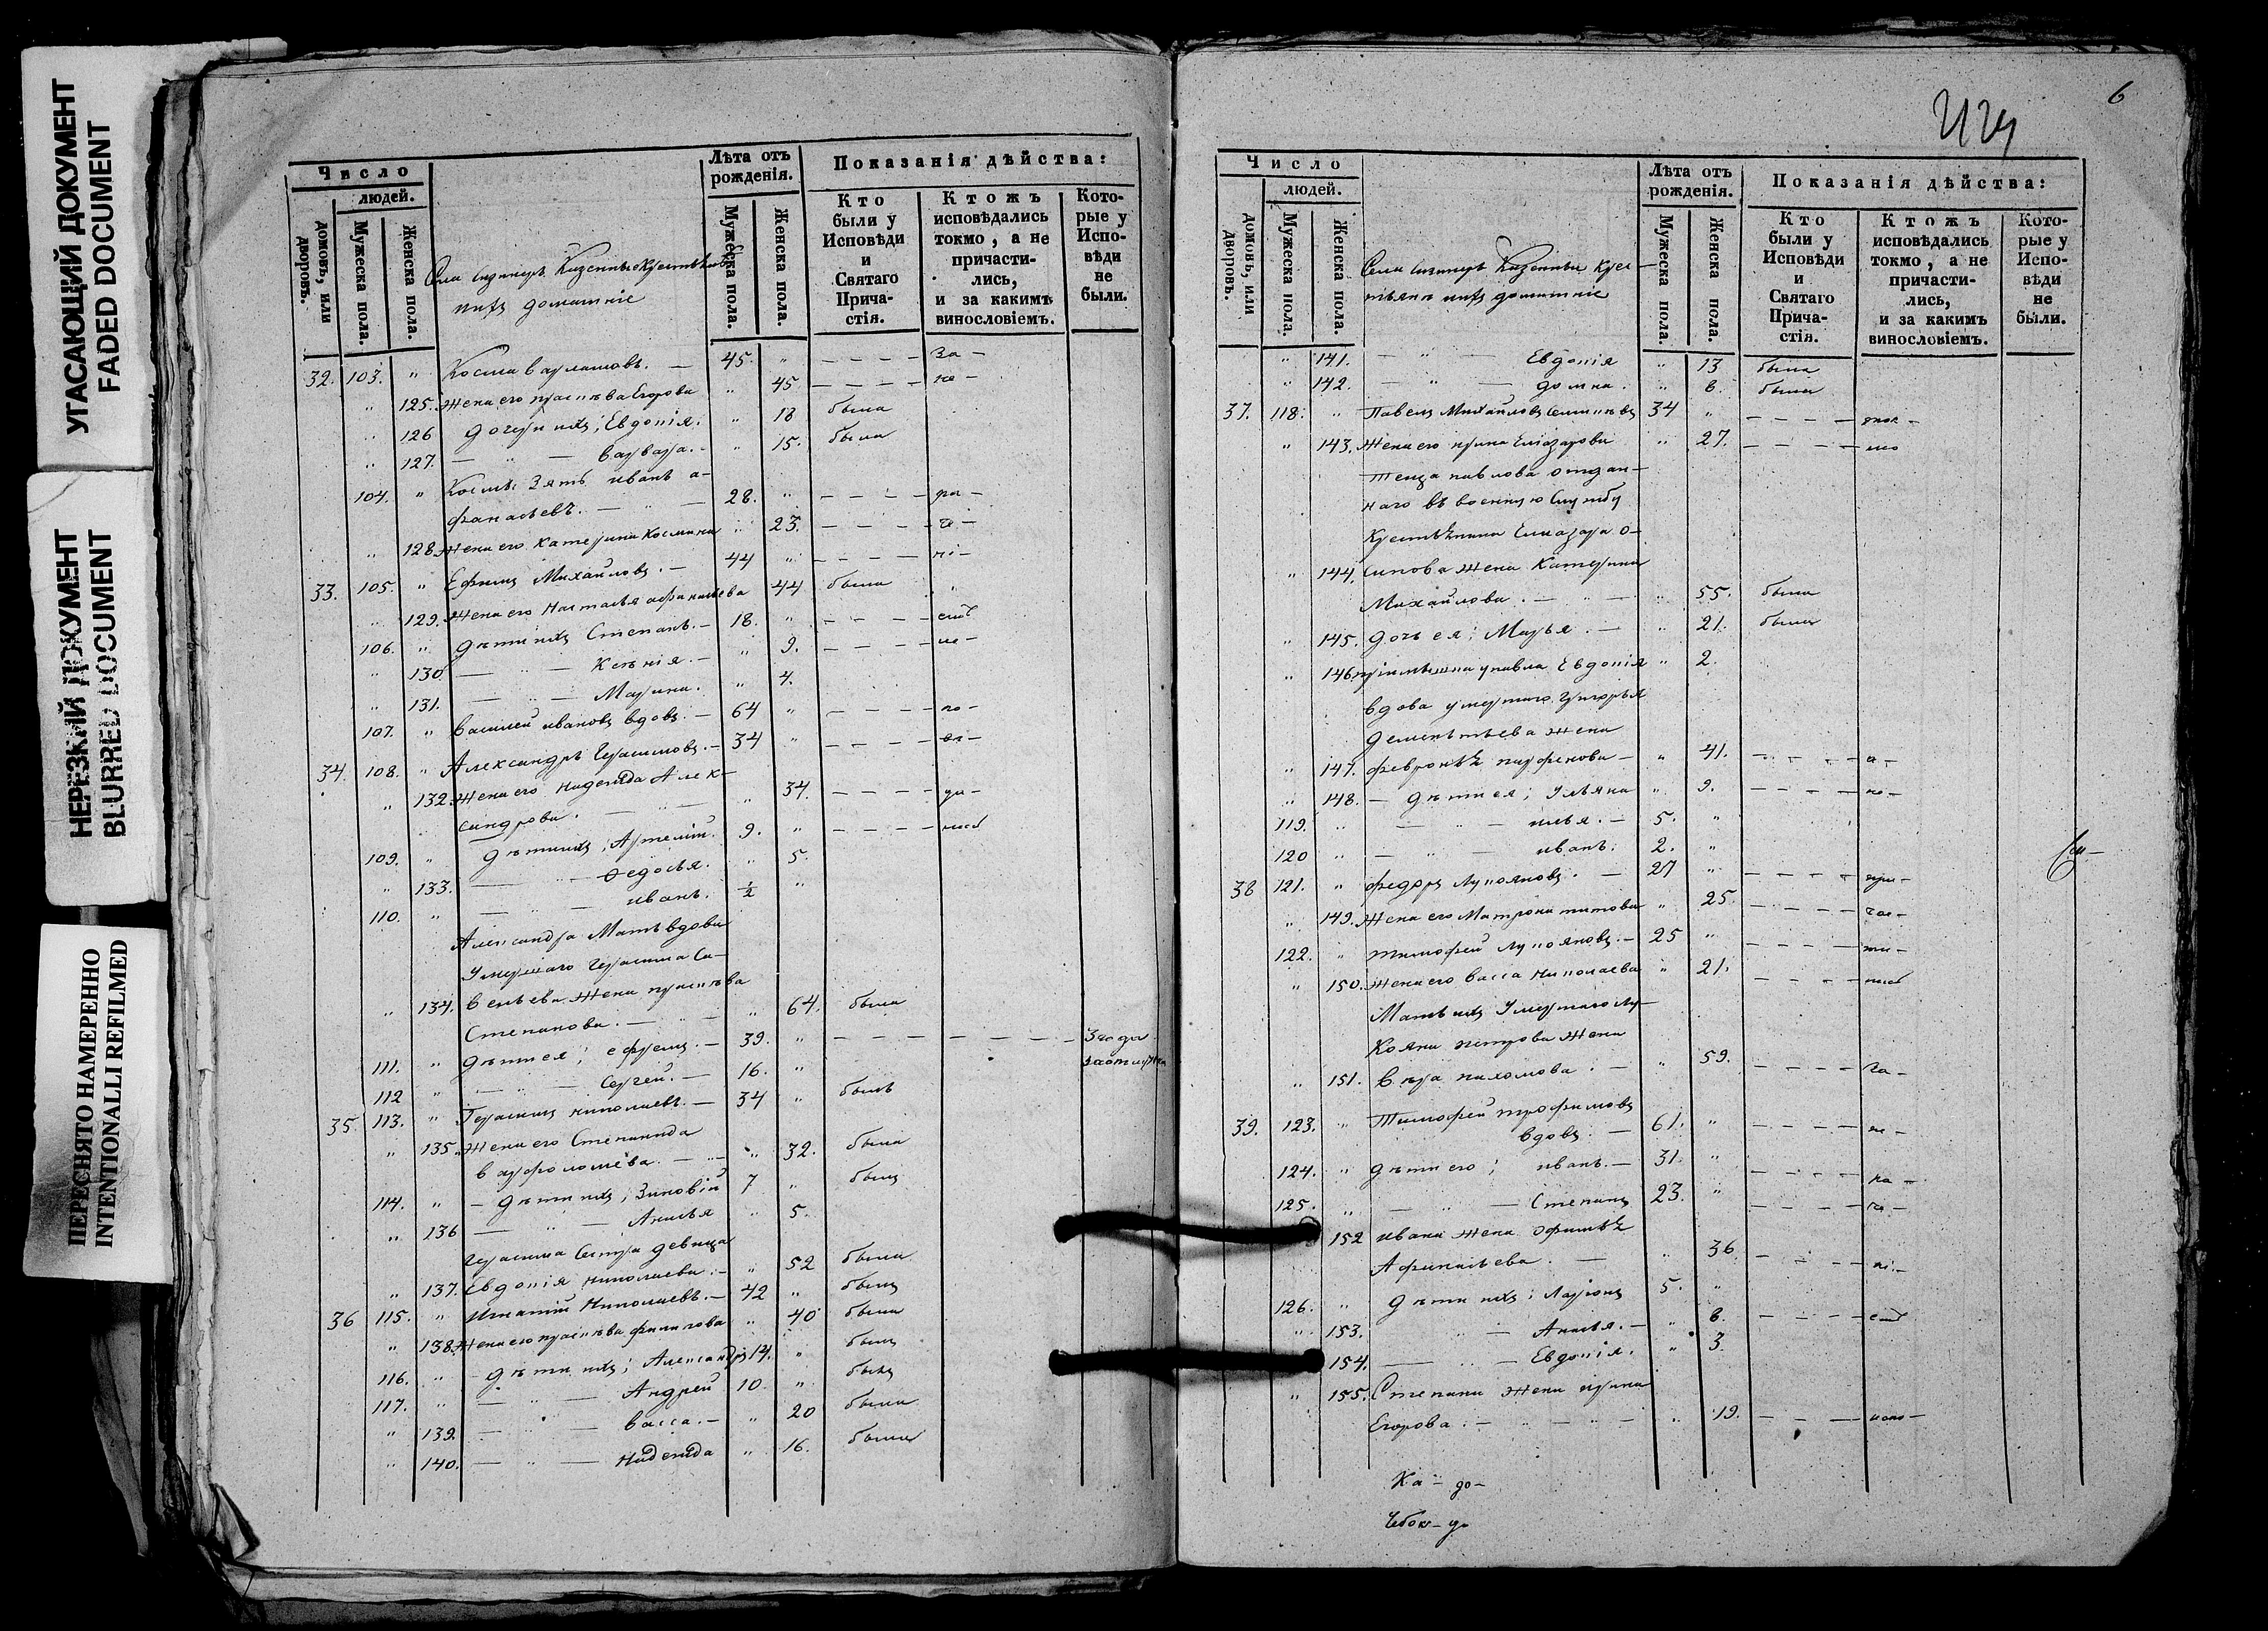 УГАСАЮЩИЙ ДОКУМЕНТ
FADED DOCUMENT
НЕРЕЗКИЙ ДОКУМЕНТ
BLURRED DOCUMENT
ПЕРЕСНЯТО НАМЕРЕННО
INTENTIONALLI REFILMED
Число
людей.
домовъ, или дворовъ.
Мужеска пола.
Женска пола.
Лѣта отъ рожденія.
Мужеска пола.
Женска пола.
Показанія дѣйства:
Кто были у Исповѣди и Святаго Причастія.
Ктожъ исповѣдались токмо, а не причастились, и за какимъ винословіемъ.
Которые у Исповѣди не были.
Села Казенные
ихъ домашніе
32. 103. " Косма Варламовъ. — 45. "
" 125. Жена его Прасковья Егорова " 45
" 126 Дочери ихъ; Евдокія. " 18 была
" 127. — " — Варвара. — " 15. была
104. " Космы Зять Иванъ А-
фанасьевъ. — 28. "
" 128. Жена его Катерина Космина " 23.
33. 105. " Ефимъ Михайловъ. — 44 "
" 129. Жена его Настасья Афанасьева 44 была
106. " Дѣти ихъ Степанъ. — 18. "
" 130 — Ксенія. — " 9.
" 131. — " — Марина. " 4.
107. " Василей Ивановъ вдовъ. — 64 "
34. 108. " Александръ Герасимовъ. — 34 "
" 132. Жена его Надежда Алек-
сандрова. — " 34.
109. " Дѣти ихъ; Артемій. 9. "
" 133. — Федосья. " 5.
110. " — " — Иванъ. ½ "
Александра Мать вдова
Умершаго Герасима Са-
" 134. вельева Жена Прасковья
Степанова. — " 64. была
111. " Дѣти ея; Ефремъ. — 39. " 3 года
112 " — " — Сергей. — 16. " былъ
35. 113. " Герасимъ Николаевъ. — 34 "
" 135. Жена его Степанида
Варфоломеева. — " 32. была
114. " — Дѣти ихъ; Зиновій 7 " былъ
" 136 — " — Анисья " 5.
Герасима Сестра девица
" 137. Евдокія Николаева. — " 52 была
36 115. " Игнатій Николаевъ. — 42 " былъ
" 138. Жена его Прасковья Филипова " 40 была
116. " Дѣти ихъ; Александръ 14. " былъ
117. " — " — Андрей 10 " былъ
" 139. — " — Васса. — " 20 была
" 140. — " — Надежда " 16. была
6
Число
людей.
домовъ, или дворовъ.
Мужеска пола.
Женска пола.
Лѣта отъ рожденія.
Мужеска пола.
Женска пола.
Показанія дѣйства:
Кто были у Исповѣди и Святаго Причастія.
Ктожъ исповѣдались токмо, а не причастились, и за какимъ винословіемъ.
Которые у Исповѣди не были.
Села Казенные Крес-
тьяне ихъ домашніе
" 141. — " — Евдокія " 13 была
" 142. — " — Домна. " 8. была
37. 118. " Павелъ Михайловъ 34 "
" 143. Жена его Ирина Елиазарова " 27.
Теща Павлова отдан-
наго въ военную Службу
Крестьянина Елиазара О-
" 144. сипова Жена Катерина
Михайлова. — " 55. была
" 145. Дочь ея; Марья. — " 21. была
" 146. у Павла Евдокія " 2.
вдова умершаго Григорья
Дементьева Жена
" 147. Февронья Парфенова — " 41.
" 148. — Дѣти ея; Ульяна " 9.
119. " — " — Илья. — 5. "
120 " — " — Иванъ. 2. "
38 121. " Федоръ Лукояновъ. — 27 "
" 149. Жена его Матрона Титова " 25.
122. " Тимофей Лукояновъ. — 25 "
" 150. Жена его Васса Николаева " 21.
Мать ихъ Умершаго Лу-
кояна Петрова Жена
" 151. Вѣра Пахомова. — " 59.
39. 123. " Тимофей Трофимовъ
вдовъ. — 61. "
124. " Дѣти его; Иванъ. — 31. "
125. " — " — Степанъ 23. "
152 Ивана Жена
Афанасьева. — " 36
126. " Дѣти ихъ; Ларіонъ 5. "
" 153. " — Анисья. — " 8.
154. — " — Евдокія. " 3.
" 155. Степана Жена Ирина
Егорова. — " — " — " 19.